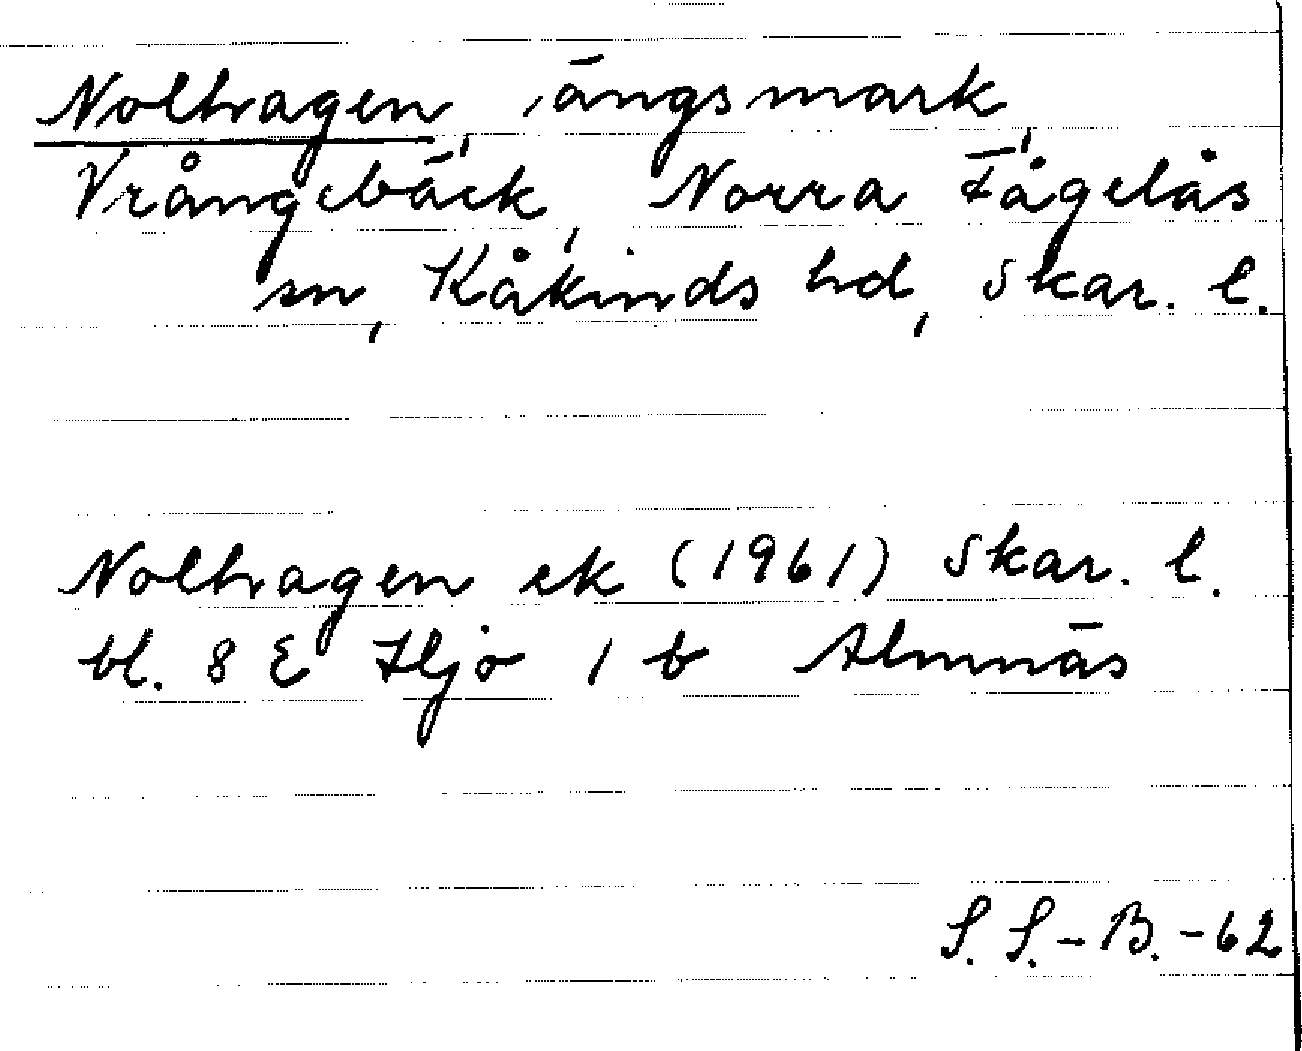 Nolhagen, ängsmark,
Vrångebäck, Norra Fågelås
sn, Kåkinds hd, Skar. l.
Nolhagen ek (1961) Skar. l.
bl. 8 E Hjo 1 b Almnäs
S. S.-B. -62